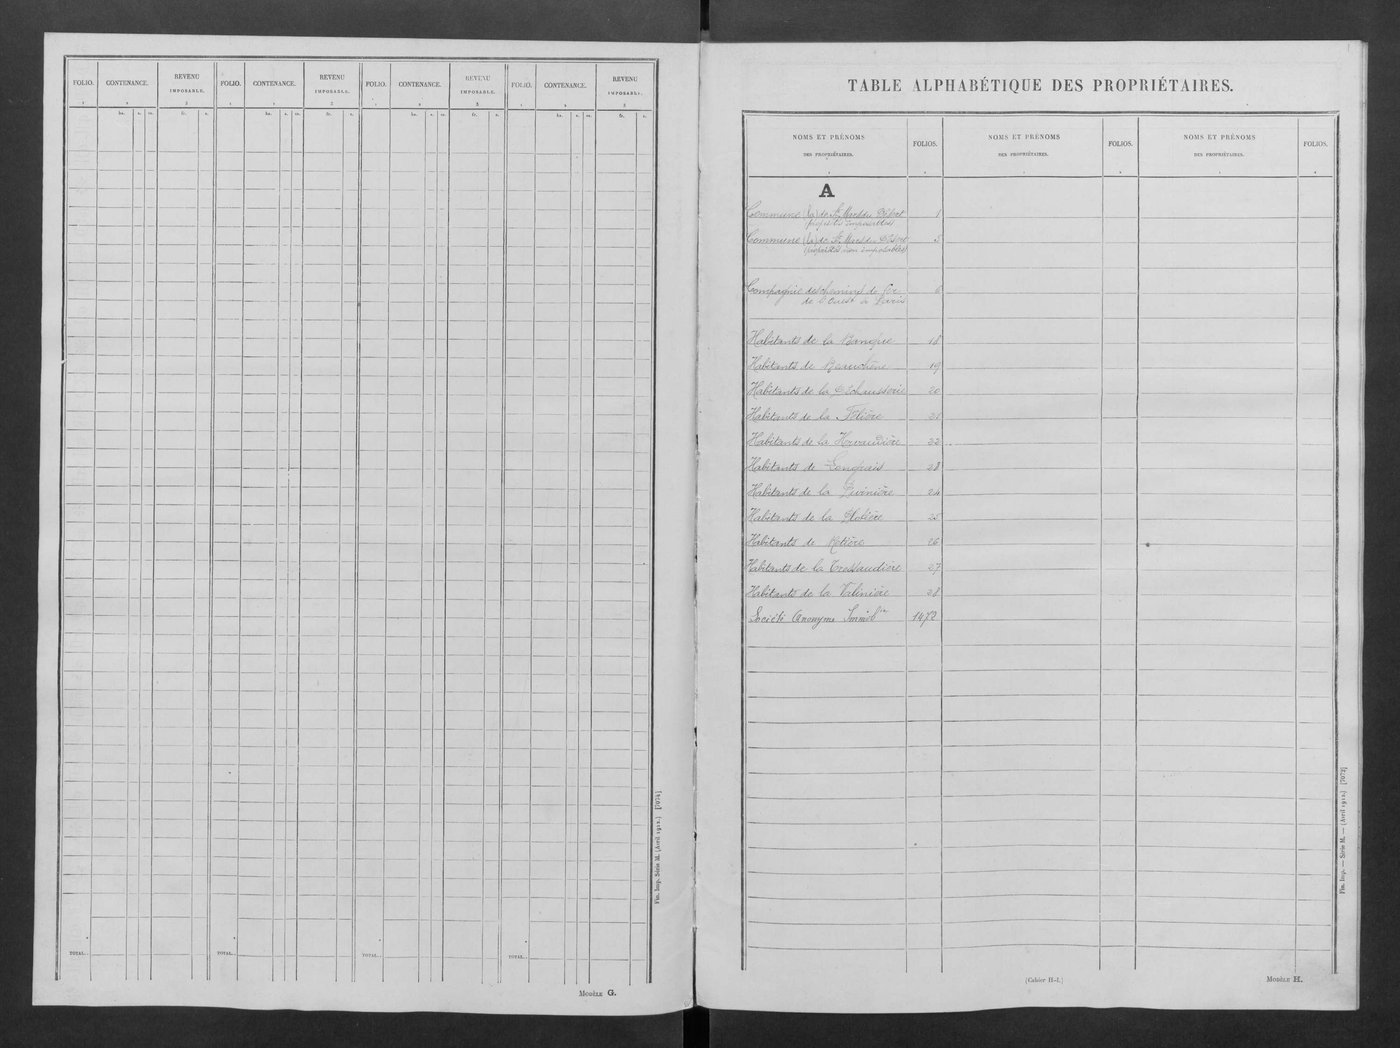 FOLIO. CONTENANCE. REVENU IMPOSABLE. FOLIO. CONTENANCE. REVENU IMPOSABLE. FOLIO. CONTENANCE. REVENU IMPOSABLE. FOLIO. CONTENANCE. REVENU IMPOSABLE.
1 2 3 1 2 3 1 2 3 1 2 3
ha. a. ca. fr. c. ha. a. ca. fr. c. ha. a. ca. fr. c. ha. a. ca. fr. c.
TOTAL. TOTAL. TOTAL. TOTAL.
Fin. Imp. Série M. (Avril 1912.) [7074]
MODÈLE G.
TABLE ALPHABÉTIQUE DES PROPRIÉTAIRES.
NOMS ET PRÉNOMS DES PROPRIÉTAIRES. FOLIOS. NOMS ET PRÉNOMS DES PROPRIÉTAIRES. FOLIOS. NOMS ET PRÉNOMS DES PROPRIÉTAIRES. FOLIOS.
A
Commune (la) de St Mars du Désert 1
(propriétés imposables)
Commune (la) de St Mars du Désert 5
(propriétés non imposables)
Compagnie des chemins de fer 6
de l'Ouest à Paris
Habitants de la Barrique 18
Habitants de Beauchêne 19
Habitants de la 20
Habitants de la Filière 21
Habitants de la Hervaudière 22
Habitants de Longrais 23
Habitants de la 24
Habitants de la 25
Habitants de 26
Habitants de la 27
Habitants de la Valinière 28
Société Anonyme Immobre 1472
(Cahier H-I.)
MODÈLE H.
Fin. Imp. — Série M. — (Avril 1912.) [7073]